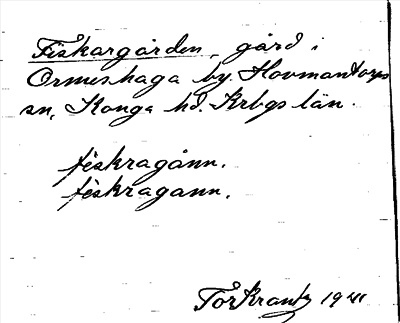 Fiskargården, gård i
Ormeshaga by. Hovmantorps
sn, Konga hd. Krbgs län.
fiskragånn.
fiskragann.
Tor Krantz 1941